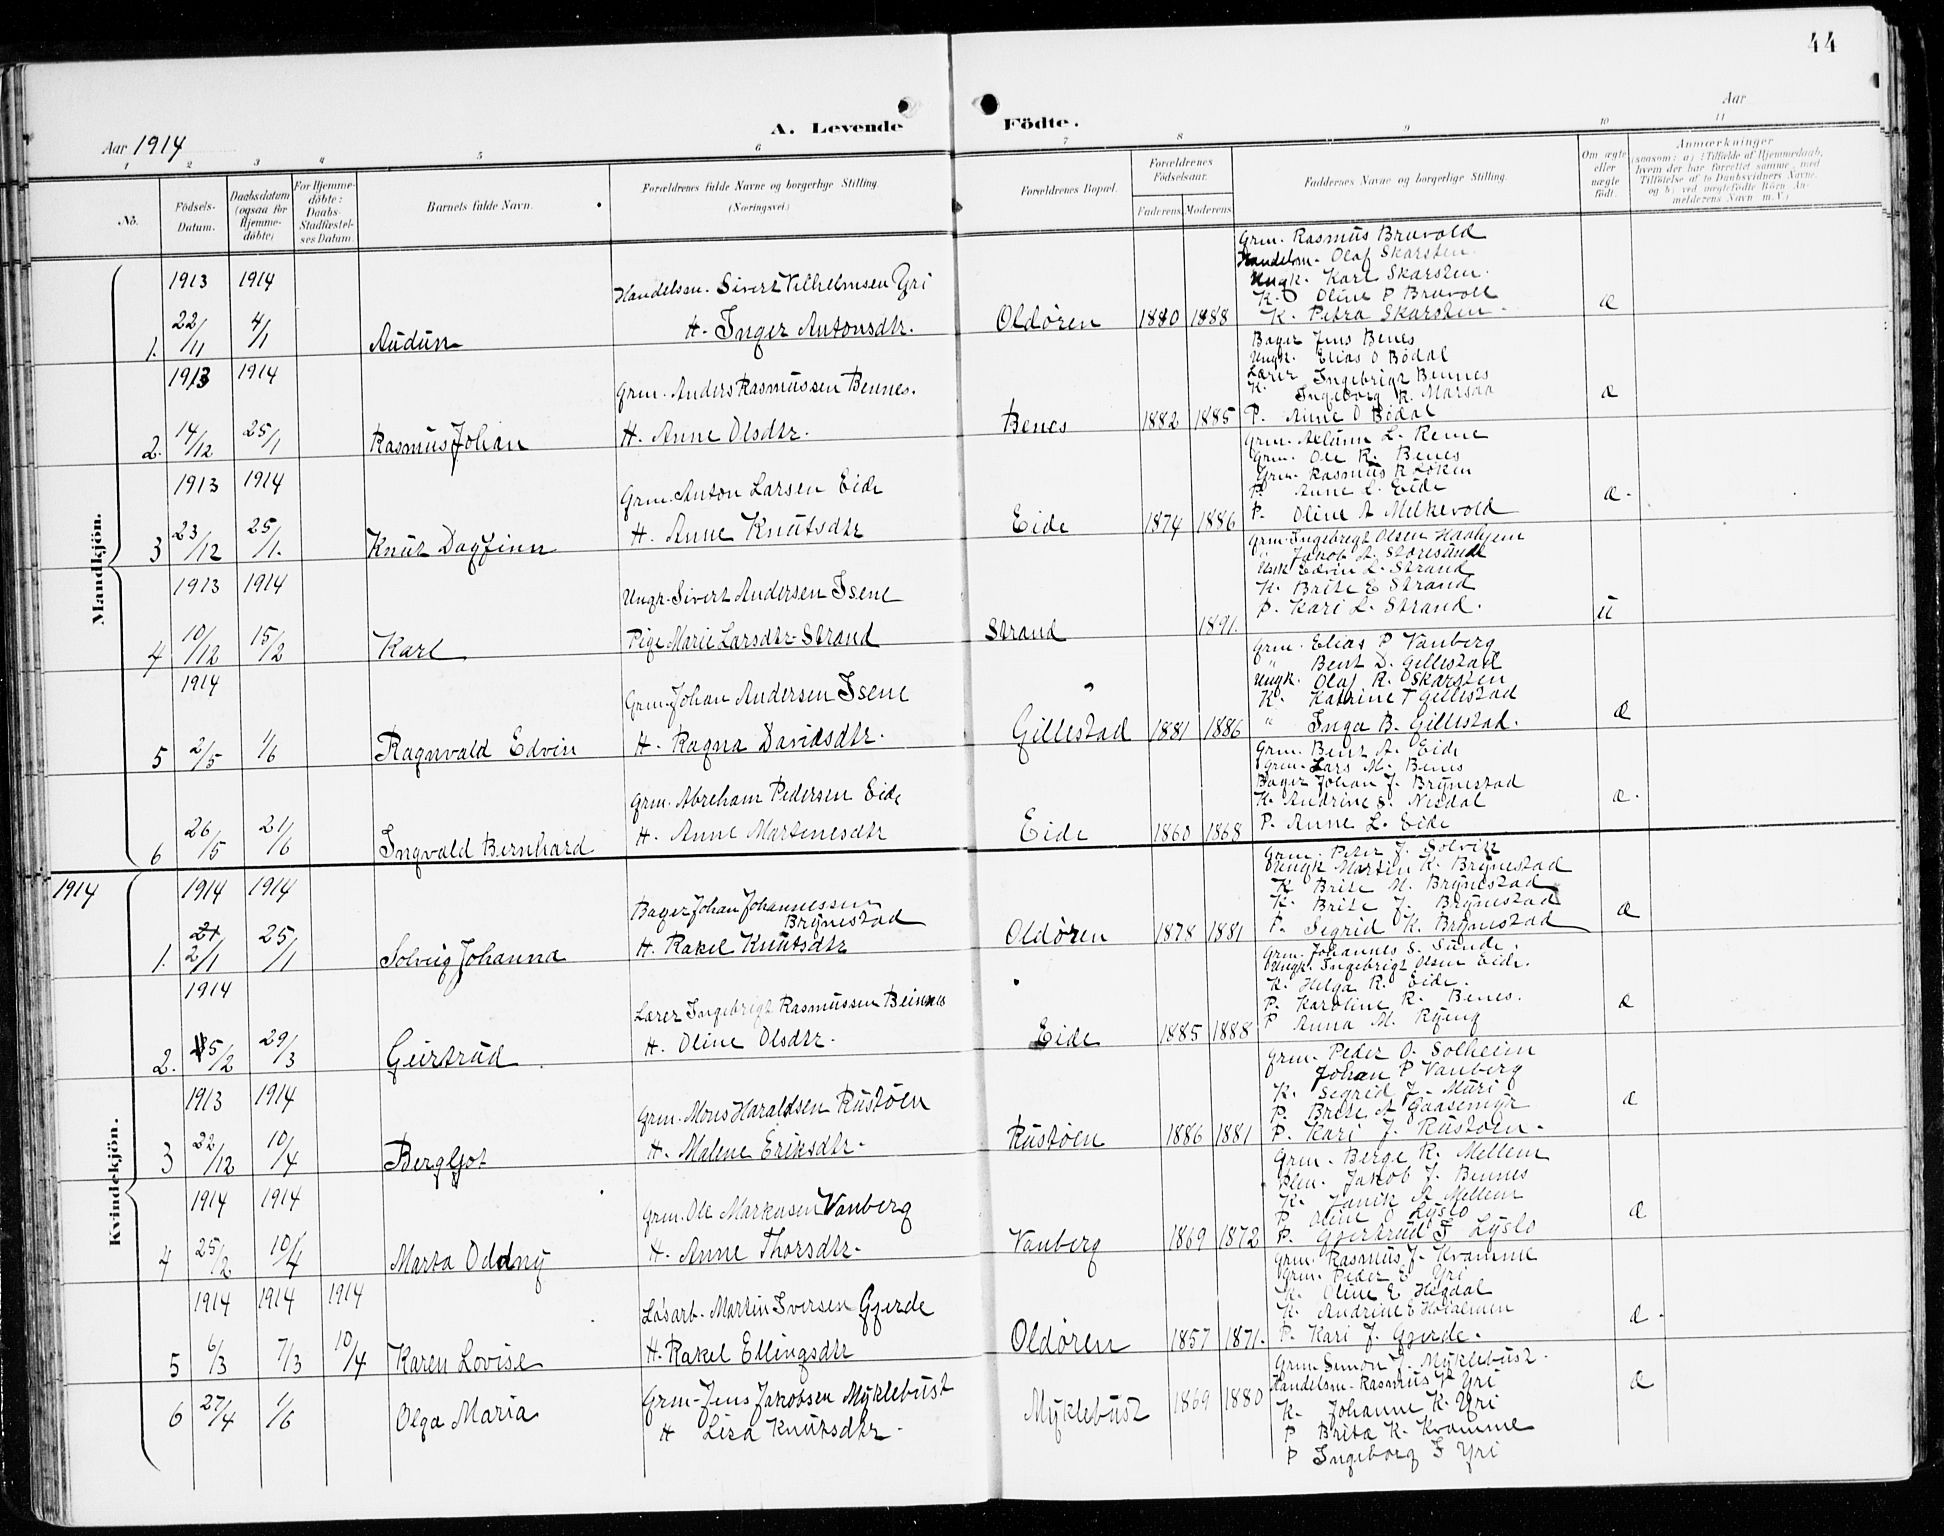 44
Aar 1914
A. Levende Födte.
Aar
1 2 3 4 5 6 7 8 9 10 11
No.
Födsels-Datum.
Daabsdatum (ogsaa for Hjemme-döbte)
For Hjemme-döbte: Daabs-Stadfæstel-ses Datum
Barnets fulde Navn.
Forældrenes fulde Navne og borgerlige Stilling. (Næringsvei.)
Forældrenes Bopæl.
Forældrenes Födselsaar.
Faderens Moderens
Faddernes Navne og borgerlige Stilling.
Om ægte eller uægte födt.
Anmærkninger
(saasom: a) i Tilfælde af Hjemmedaab, hvem der har forrettet samme, med Tilföielse af to Daabsvidners Navne, og b) ved uægtefödte Börn, An-melderens Navn m.V.)
Mandkjön.
1. 1913 22/11 1914 4/1 Audun
Handelsm. Sivert Vilhelmsen Yri
H. Inger Antonsdtr.
Oldøren 1880 1888
Grm. Rasmus Bruvold
Handelsm. Olaf Skarsten
Ungk. Karl Skarsten.
K. Oline P Bruvoll
K. Petra Skarsten.
æ
2. 1913 14/12 1914 25/1 Rasmus Johan
Grm. Anders Rasmussen Bennes.
H. Anne Olsdtr.
Benes 1882 1885
Bager Jens Benes
Ungk. Elias O Bødal
Lærer Ingebrigt Bennes
K. Ingeborg R. Marsaa
P. Anne O Bødal
æ
3 1913 23/12 1914 25/1. Knut Dagfinn
Grm. Anton Larsen Eide
H. Anne Knutsdtr
Eide 1874 1886
Grm. L. Reme
Grm. Ole R. Benes
Grm. Rasmus R Løken
P. Anne L. Eide
P. Oline A Melkevold
æ.
4 1913 10/12 1914 15/2 Karl
Ungk. Sivert Andersen Isene
Pige Marie Larsdtr Strand
Strand 1891.
Grm. Ingebrigt Olsen Haahjem
" Jakob A.
Ungk Edvin L. Strand
K. Brite E Strand
P. Kari L. Strand.
u
5 1914 2/5 1/6 Ragnvald Edvin
Grm. Johan Andersen Isene
H. Ragna Davidsdtr.
Gillestad 1881 1886
Grm. Elias P Vanberg
" Bent D. Gillestad
Ungk. Olaf R. Skarsten
K. Katrine T Gillestad
" Inga B. Gillestad.
æ
6 26/5 21/6 Ingvald Bernhard
Grm. Abraham Pedersen Eide
H. Anne Martinesdtr
Eide 1860 1868
Grm. Bent A. Eide
Grm. Lars M. Benes
Bager Johan J. Brynestad
K. Andrine S. Nesdal
P. Anne L. Eide
æ.
1914
Kvindekjön.
1. 1914 2/1 1914 25/1 Solveig Johanna
Bager Johan Johannessen Brynestad
H. Rakel Knutsdtr
Oldøren 1878 1881
Grm. Peter J. Solvik
Ungk Martin K. Brynestad
K Brite M. Brynestad
K. Brite J. Brynestad
P. Segrid K. Brynestad
æ
2. 1914 5/2 29/3 Geirtrud
Lærer Ingebrigt Rasmussen Beinnes
H. Oline Olsdtr.
Eide 1885 1888
Grm. Johannes S. Sunde.
Ungk. Ingebrigt Olsen Eide.
K. Helga R. Eide.
P. Karoline R. Benes.
P Anna M. Ryeng
æ
3 1913 22/12 1914 10/4 Bergljot
Grm. Mons Haraldsen Rustøen
H. Malene Eriksdtr.
Rustøen 1886 1881
Grm. Peder O. Solheim
Johan P Vanberg
K. Segrid J. Muri
P. Brite A Gaasemyr
P. Kari J. Rustøen.
æ
4 1914 25/2 1914 10/4 Marta Oddny
Grm. Ole Markusen Vanberg
H. Anne Thorsdtr.
Vanberg 1869 1872
Grm. Børge R. Mellem
Jakob J. Bennes
K. Janik A Mellem
P Oline O Lyslo
P. Gjertrud F Lyslo
æ
5 1914 6/3 1914 7/3 1914 10/4 Karen Lovise
Løsarb. Martin Iversen Gjerde
H. Rakel Ellingsdtr
Oldøren 1857 1871.
Grm. Rasmus J. Kvamme
Grm. Peder E Yri
K. Oline E Hegdal
K. Andrine E
P. Kari J. Gjerde.
æ.
6 27/4 1/6 Olga Maria
Grm. Jens Jakobsen Myklebust
H Lisa Knutsdtr.
Myklebust 1869 1880
Grm Simon J. Myklebust.
Handelsm. Rasmus V Yri
K. Johanne K. Yri
P Brita K. Kvamme
P Ingeborg F Yri
æ